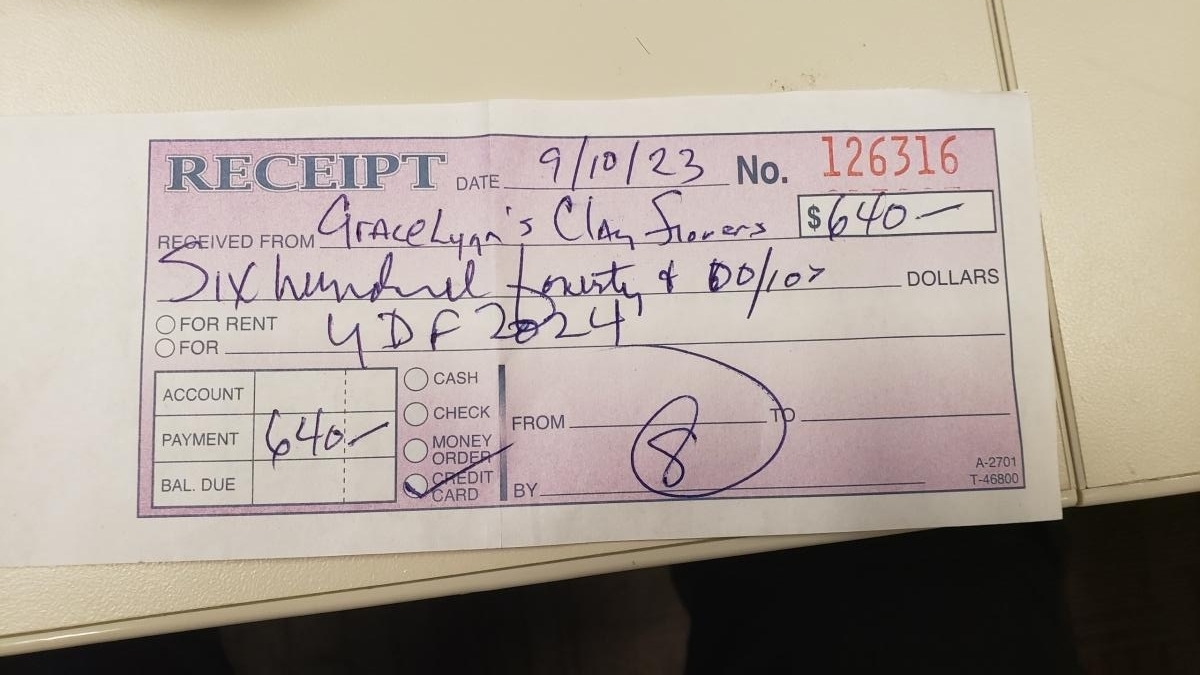 RECEIPT DATE 9/10/23 No. 126316
RECEIVED FROM GraceLynn's Clay Flowers $640—
Six hundred fourty & 00/100 DOLLARS
FOR RENT YDF 2024
FOR
ACCOUNT
PAYMENT 640—
BAL. DUE
CASH
CHECK
MONEY ORDER
CREDIT CARD
FROM TO
8
BY
A-2701
T-46800